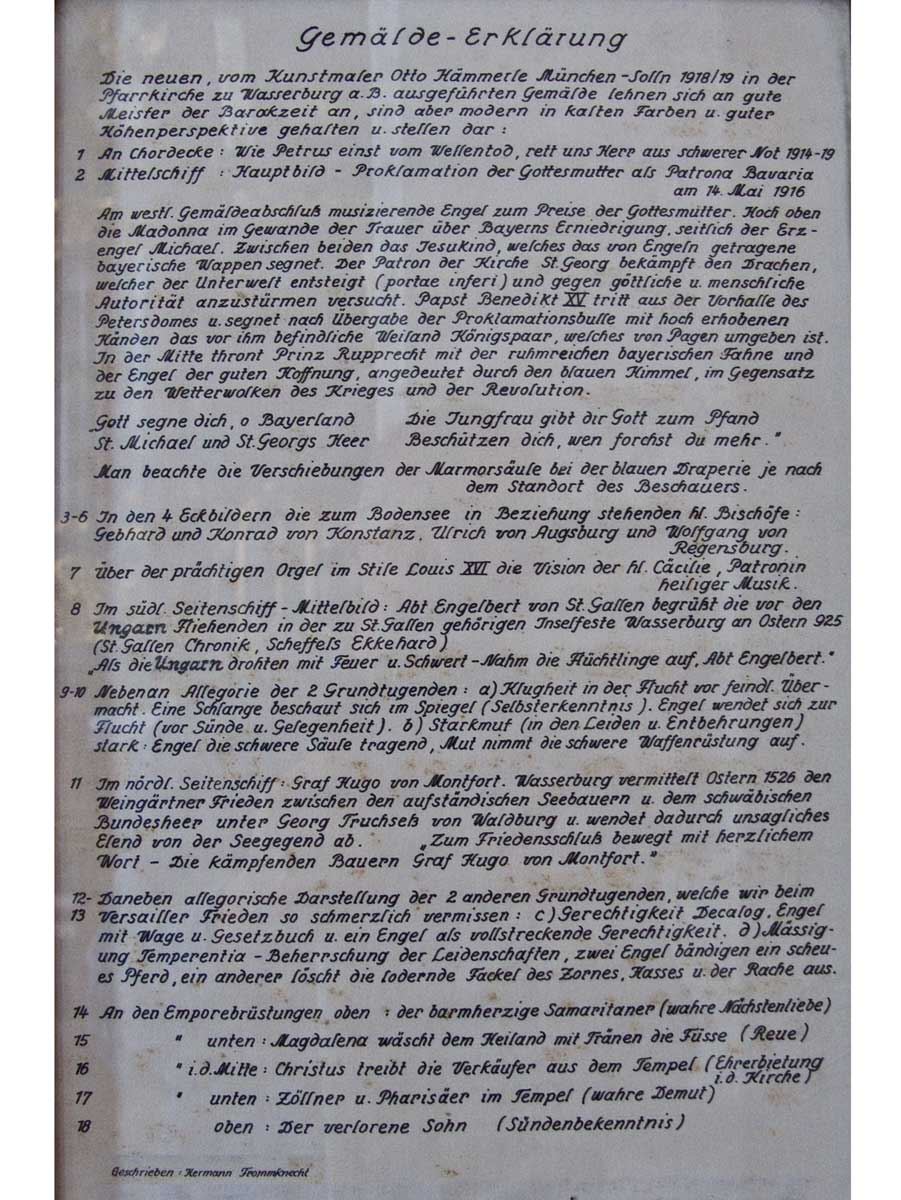 Gemälde-Erklärung
Die neuen, vom Kunstmaler Otto Hämmerle München-Solln 1918/19 in der
Pfarrkirche zu Wasserburg a.B. ausgeführten Gemälde lehnen sich an gute
Meister der Barokzeit an, sind aber modern in kalten Farben u. guter
Höhenperspektive gehalten u. stellen dar:
1 An Chordecke: Wie Petrus einst vom Wellentod, rett uns Herr aus schwerer Not 1914-19
2 Mittelschiff: Hauptbild - Proklamation der Gottesmutter als Patrona Bavaria
am 14. Mai 1916
Am westl. Gemäldeabschluß musizierende Engel zum Preise der Gottesmutter. Hoch oben
die Madonna im Gewande der Trauer über Bayerns Erniedrigung, seitlich der Erz-
engel Michael. Zwischen beiden das Jesukind, welches das von Engeln getragene
bayerische Wappen segnet. Der Patron der Kirche St. Georg bekämpft den Drachen,
welcher der Unterwelt entsteigt (portae inferi) und gegen göttliche u. menschliche
Autorität anzustürmen versucht. Papst Benedikt XV tritt aus der Vorhalle des
Petersdomes u. segnet nach Übergabe der Proklamationsbulle mit hoch erhobenen
Händen das vor ihm befindliche Weiland Königspaar, welches von Pagen umgeben ist.
In der Mitte thront Prinz Rupprecht mit der ruhmreichen bayerischen Fahne und
der Engel der guten Hoffnung, angedeutet durch den blauen Himmel, im Gegensatz
zu den Wetterwolken des Krieges und der Revolution.
„Gott segne dich, o Bayerland Die Jungfrau gibt dir Gott zum Pfand
St. Michael und St. Georgs Heer Beschützen dich, wen forchst du mehr."
Man beachte die Verschiebungen der Marmorsäule bei der blauen Draperie je nach
dem Standort des Beschauers.
3-6 In den 4 Eckbildern die zum Bodensee in Beziehung stehenden hl. Bischöfe:
Gebhard und Konrad von Konstanz, Ulrich von Augsburg und Wolfgang von
Regensburg.
7 über der prächtigen Orgel im Stile Louis XVI die Vision der hl. Cäcilie, Patronin
heiliger Musik.
8 Im südl. Seitenschiff - Mittelbild: Abt Engelbert von St. Gallen begrüßt die vor den
Ungarn Fliehenden in der zu St. Gallen gehörigen Inselfeste Wasserburg an Ostern 925
(St. Gallen Chronik, Scheffels Ekkehard)
„Als die Ungarn drohten mit Feuer u. Schwert - Nahm die Flüchtlinge auf, Abt Engelbert."
9-10 Nebenan Allegorie der 2 Grundtugenden: a) Klugheit in der Flucht vor feindl. Über-
macht. Eine Schlange beschaut sich im Spiegel (Selbsterkenntnis). Engel wendet sich zur
Flucht (vor Sünde u. Gelegenheit). b) Starkmut (in den Leiden u. Entbehrungen)
stark: Engel die schwere Säule tragend, Mut nimmt die schwere Waffenrüstung auf.
11 Im nördl. Seitenschiff: Graf Hugo von Montfort. Wasserburg vermittelt Ostern 1526 den
Weingärtner Frieden zwischen den aufständischen Seebauern u. dem schwäbischen
Bundesheer unter Georg Truchseß von Waldburg u. wendet dadurch unsagliches
Elend von der Seegegend ab. „Zum Friedensschluß bewegt mit herzlichem
Wort - Die kämpfenden Bauern Graf Hugo von Montfort."
12- Daneben allegorische Darstellung der 2 anderen Grundtugenden, welche wir beim
13 Versailler Frieden so schmerzlich vermissen: c) Gerechtigkeit Decalog, Engel
mit Wage u. Gesetzbuch u. ein Engel als vollstreckende Gerechtigkeit. d) Mässig-
ung Temperentia - Beherrschung der Leidenschaften, zwei Engel bändigen ein scheu-
es Pferd, ein anderer löscht die lodernde Fackel des Zornes, Hasses u. der Rache aus.
14 An den Emporebrüstungen oben: der barmherzige Samaritaner (wahre Nächstenliebe)
15 " unten: Magdalena wäscht dem Heiland mit Tränen die Füsse (Reue)
16 " i.d. Mitte: Christus treibt die Verkäufer aus dem Tempel (Ehrerbietung
i.d. Kirche)
17 " unten: Zöllner u. Pharisäer im Tempel (wahre Demut)
18 oben: Der verlorene Sohn (Sündenbekenntnis)
Geschrieben: Hermann Trommknecht